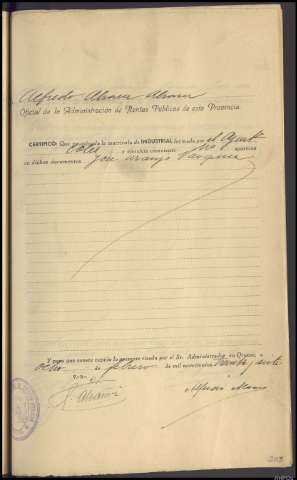 Alfredo Alvarez Alvarez
Oficial de la Administración de Rentas Públicas de esta Provincia
CERTIFICO: Que examinada la matrícula de INDUSTRIAL formada por el Ayunt.
Coles y ejercicio corriente No aparece
en dichos documentos José Araujo Vazquez
Y para que conste expido la presente visada por el Sr. Administrador en Orense, a
ocho de febrero de mil novecientos treinta y siete
V.º B.º